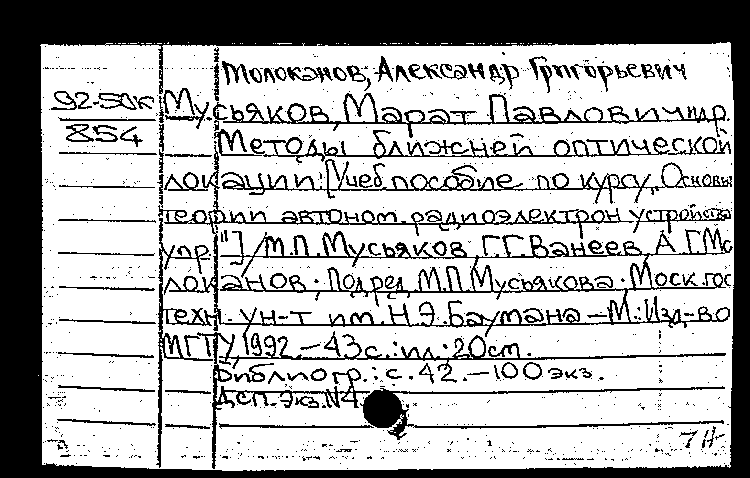 Молоканов, Александр Григорьевич
92-50к Мусьяков, Марат Павлович и др.
854 Методы ближней оптической
локации: [Учеб. пособие по курсу „Основы
теории автоном. радиоэлектрон устройства
упр."] / М.П. Мусьяков, Г.Г. Ванеев, А.Г. Мо
локанов; Под ред. М.П. Мусьякова. Моск. гос
техн. ун-т им. Н.Э. Баумана – М.: Изд-во
МГТУ, 1992. – 43 с.: ил.; 20 см.
Библиогр.: с. 42. – 100 экз.
ДСП. Экз. N4